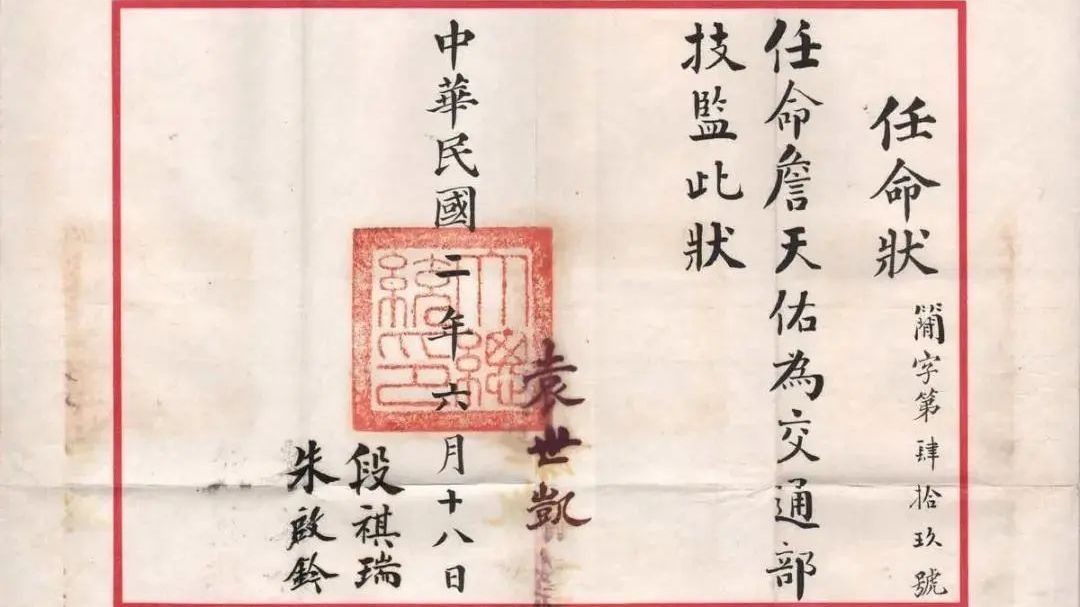 任命狀
簡字第肆拾玖號
任命詹天佑為交通部
技監此狀
袁世凱
中華民國二年六月十八日
大總統印
段祺瑞
朱啟鈐